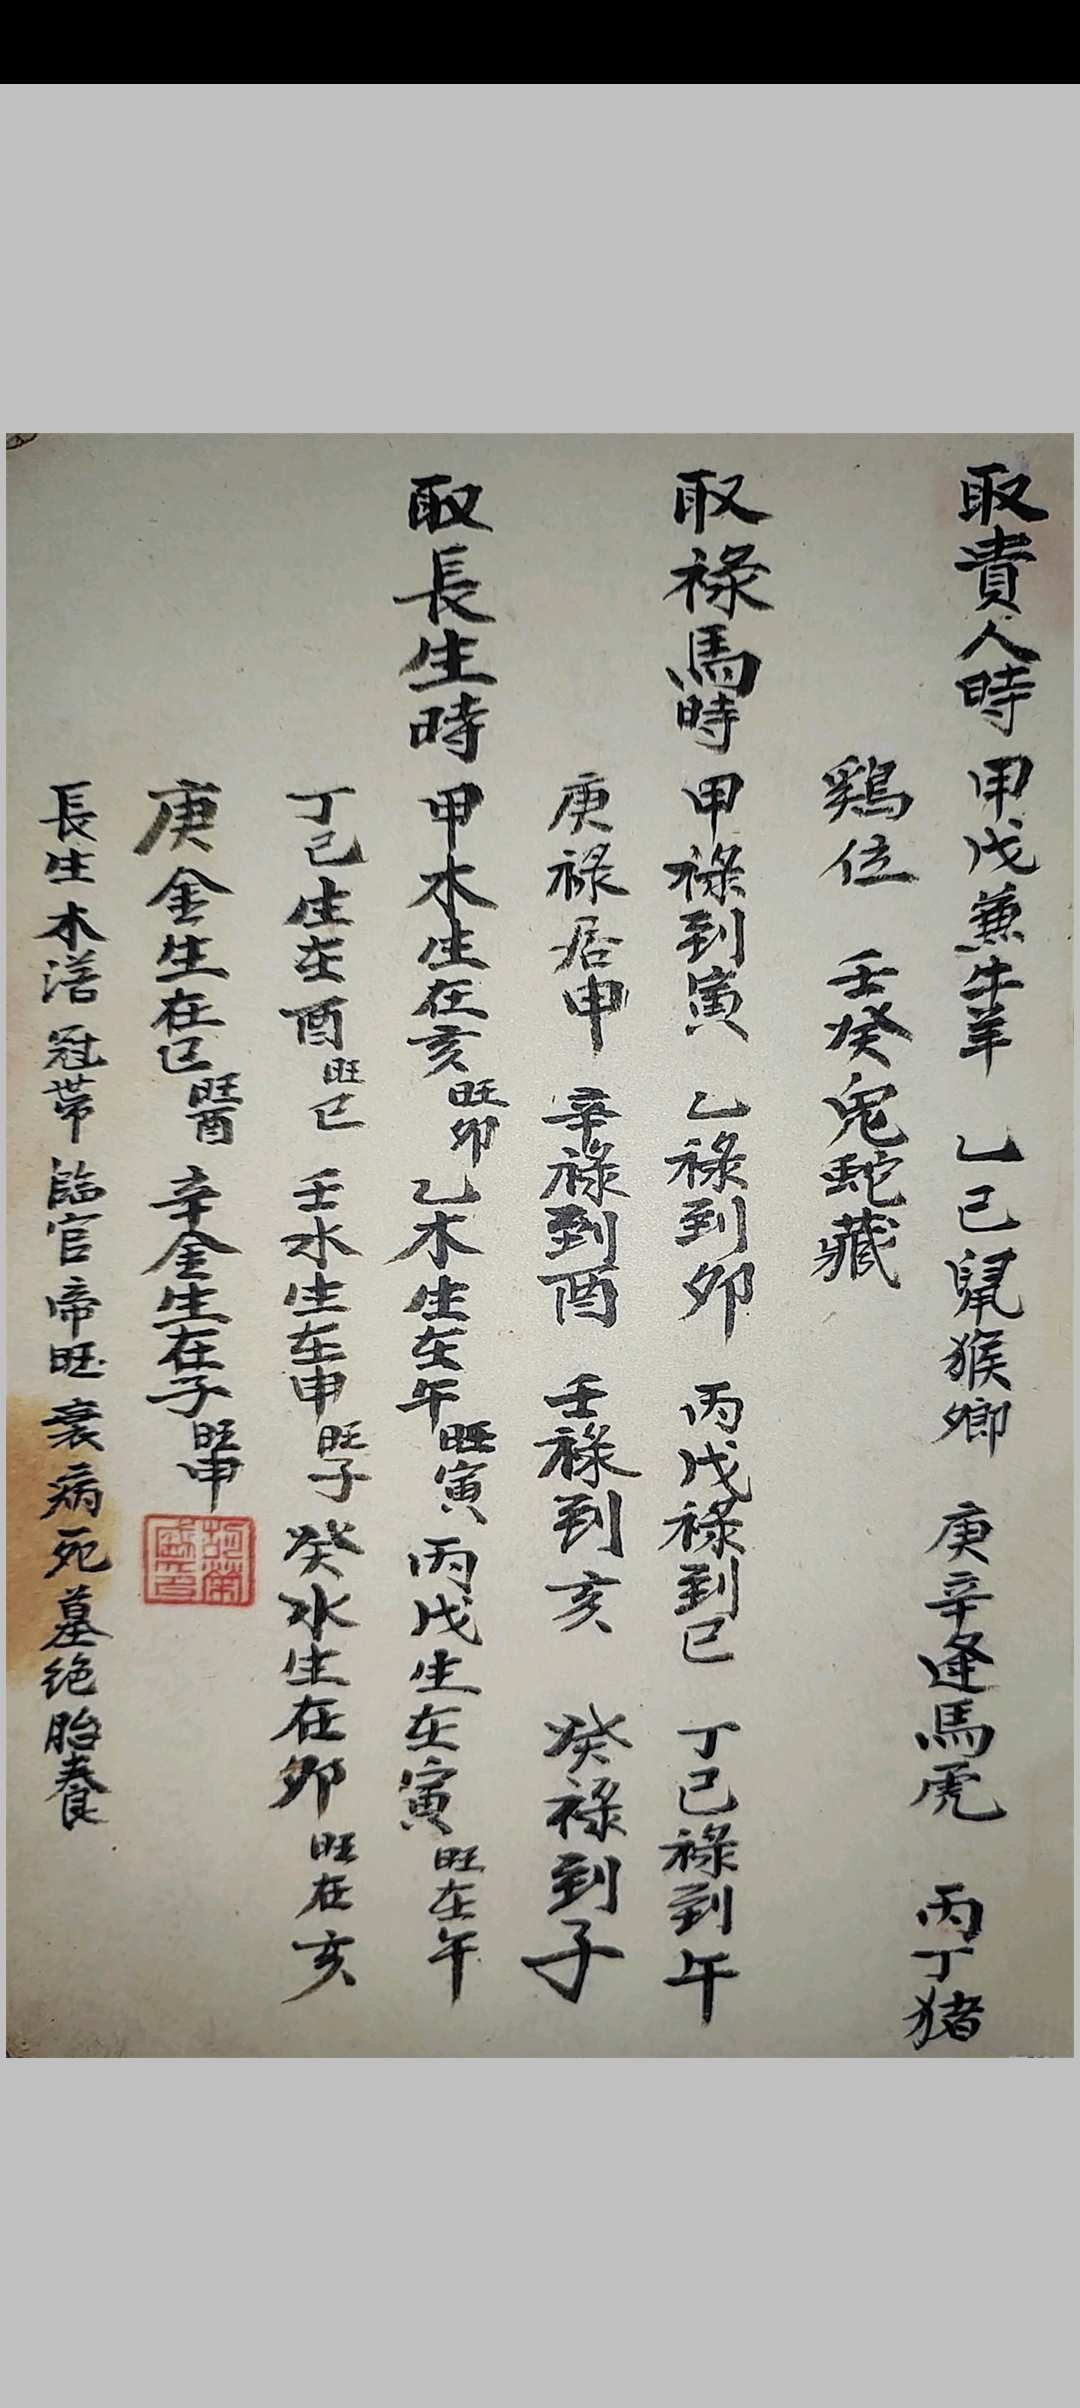 取貴人時 甲戊兼牛羊 乙己鼠猴鄉 庚辛逢馬虎 丙丁猪
鷄位 壬癸兔蛇藏
取祿馬時 甲祿到寅 乙祿到卯 丙戊祿到巳 丁己祿到午
庚祿居申 辛祿到酉 壬祿到亥 癸祿到子
取長生時 甲木生在亥旺卯 乙木生在午旺寅 丙戊生在寅旺在午
丁己生在酉旺巳 壬水生在申旺子 癸水生在卯旺在亥
庚金生在巳旺酉 辛金生在子旺申
長生 木浴 冠帶 臨官 帝旺 衰 病 死 墓 绝 胎 養